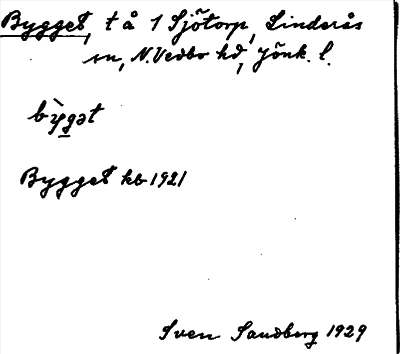 Bygget, t å 1 Sjötorp, Linderås
sn, N. Vedbo hd, Jönk. l.
bỳgət
Bygget kb 1921
Sven Sandberg 1929